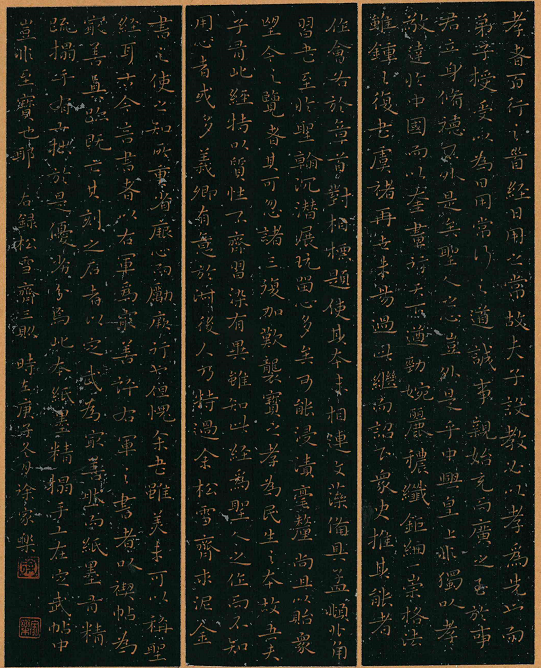 孝者百行之首經日用之常故夫子設教必以孝為先上而
弟子授受以為日用常行之道誠事親始充而廣之至於事
君立身脩德無外是矣聖人之心豈外是乎中興皇上非獨以孝
敬達於中國而以奎畫行天下遒勁婉麗穠纖鉅細一崇格法
雖鍾王復出虞褚再世未易過此繼而詔下眾史推其能者
作會名於章首對相標題使其本末相連文藻備具蓋頻於用
習老至於聖翰沉潛展玩留心多矣可能浸漬毫釐尚且以貽眾
望令之覽者其可忽諸三復加歎襲寶之孝為民生之本故吾夫
子有此經指以質性不齊習染有異雖知此經為聖人之作而不知
用心者或多義卿有意於淑後人乃特過余松雪齋求泥金
書之使之知所重者廉心而勵廉行也但愧余書雖美未可以稱聖
經耳古今言書者以右軍為最善評右軍之書者以禊帖為
最善真跡既亡其刻之石者以定武為最善然而紙墨有精
疏搨手有工拙於是優劣分焉此本紙墨精搨手工在定武帖中
豈非至寶也耶 右錄松雪齋三則 時在庚子冬月徐家樂